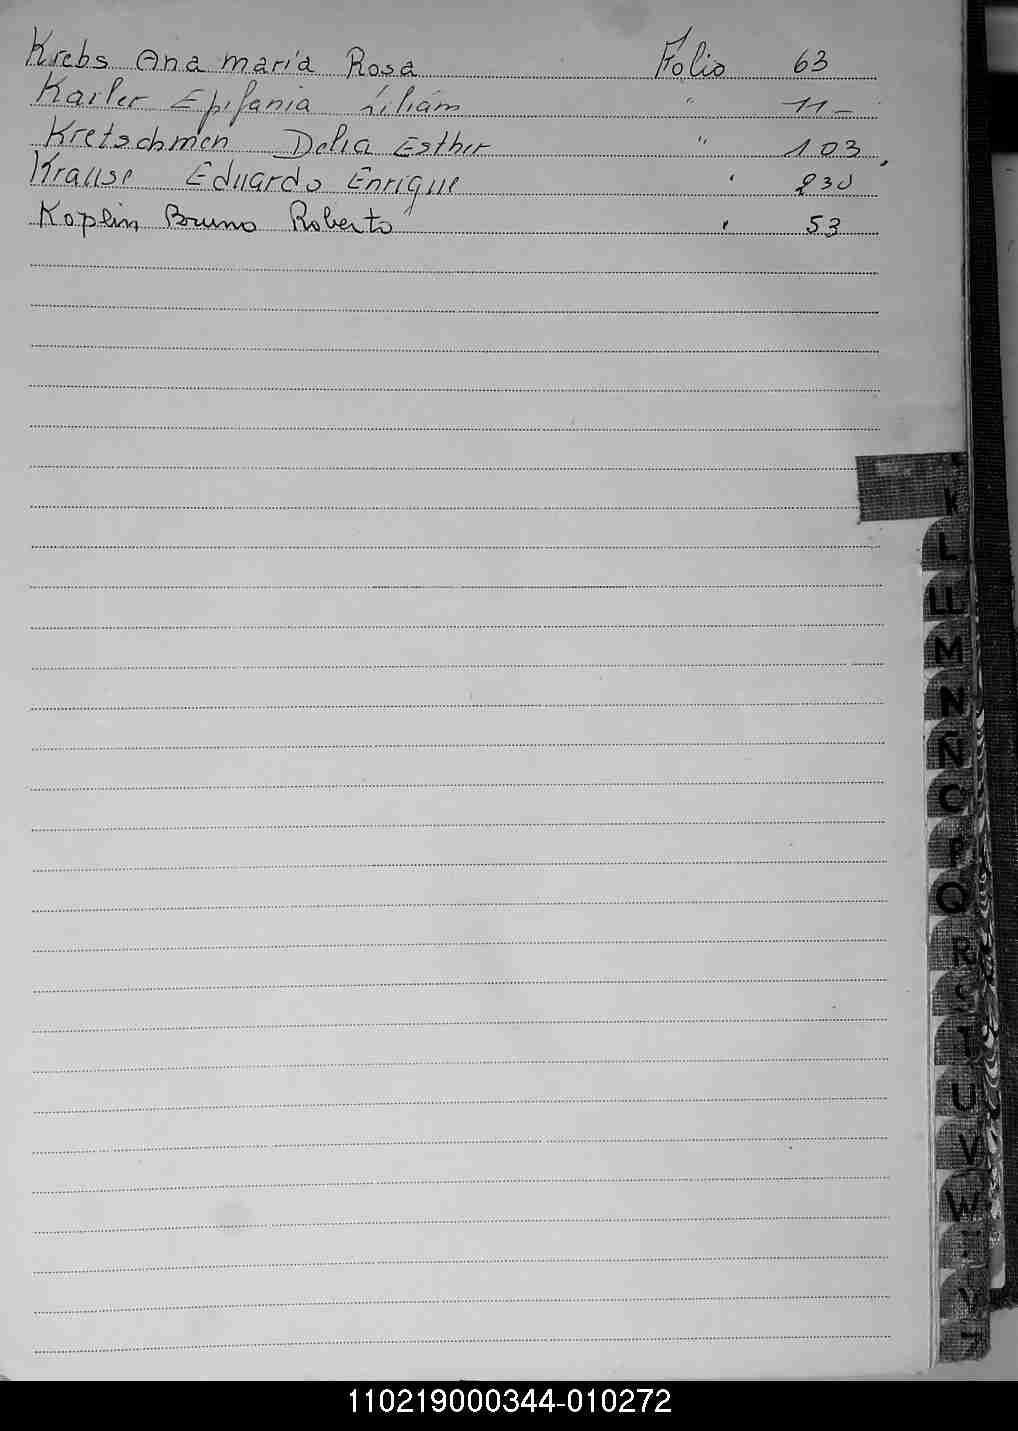 Krebs Ana maria Rosa Folio 63
Karler Epifania Lilian " 11-
Kretschmen Delia Esther " 103
Krause Eduardo Enrique " 230
Koplin Bruno Roberto " 53
K
L
LL
M
N
Ñ
O
P
Q
R
S
T
U
V
W
Y
Z
110219000344-010272